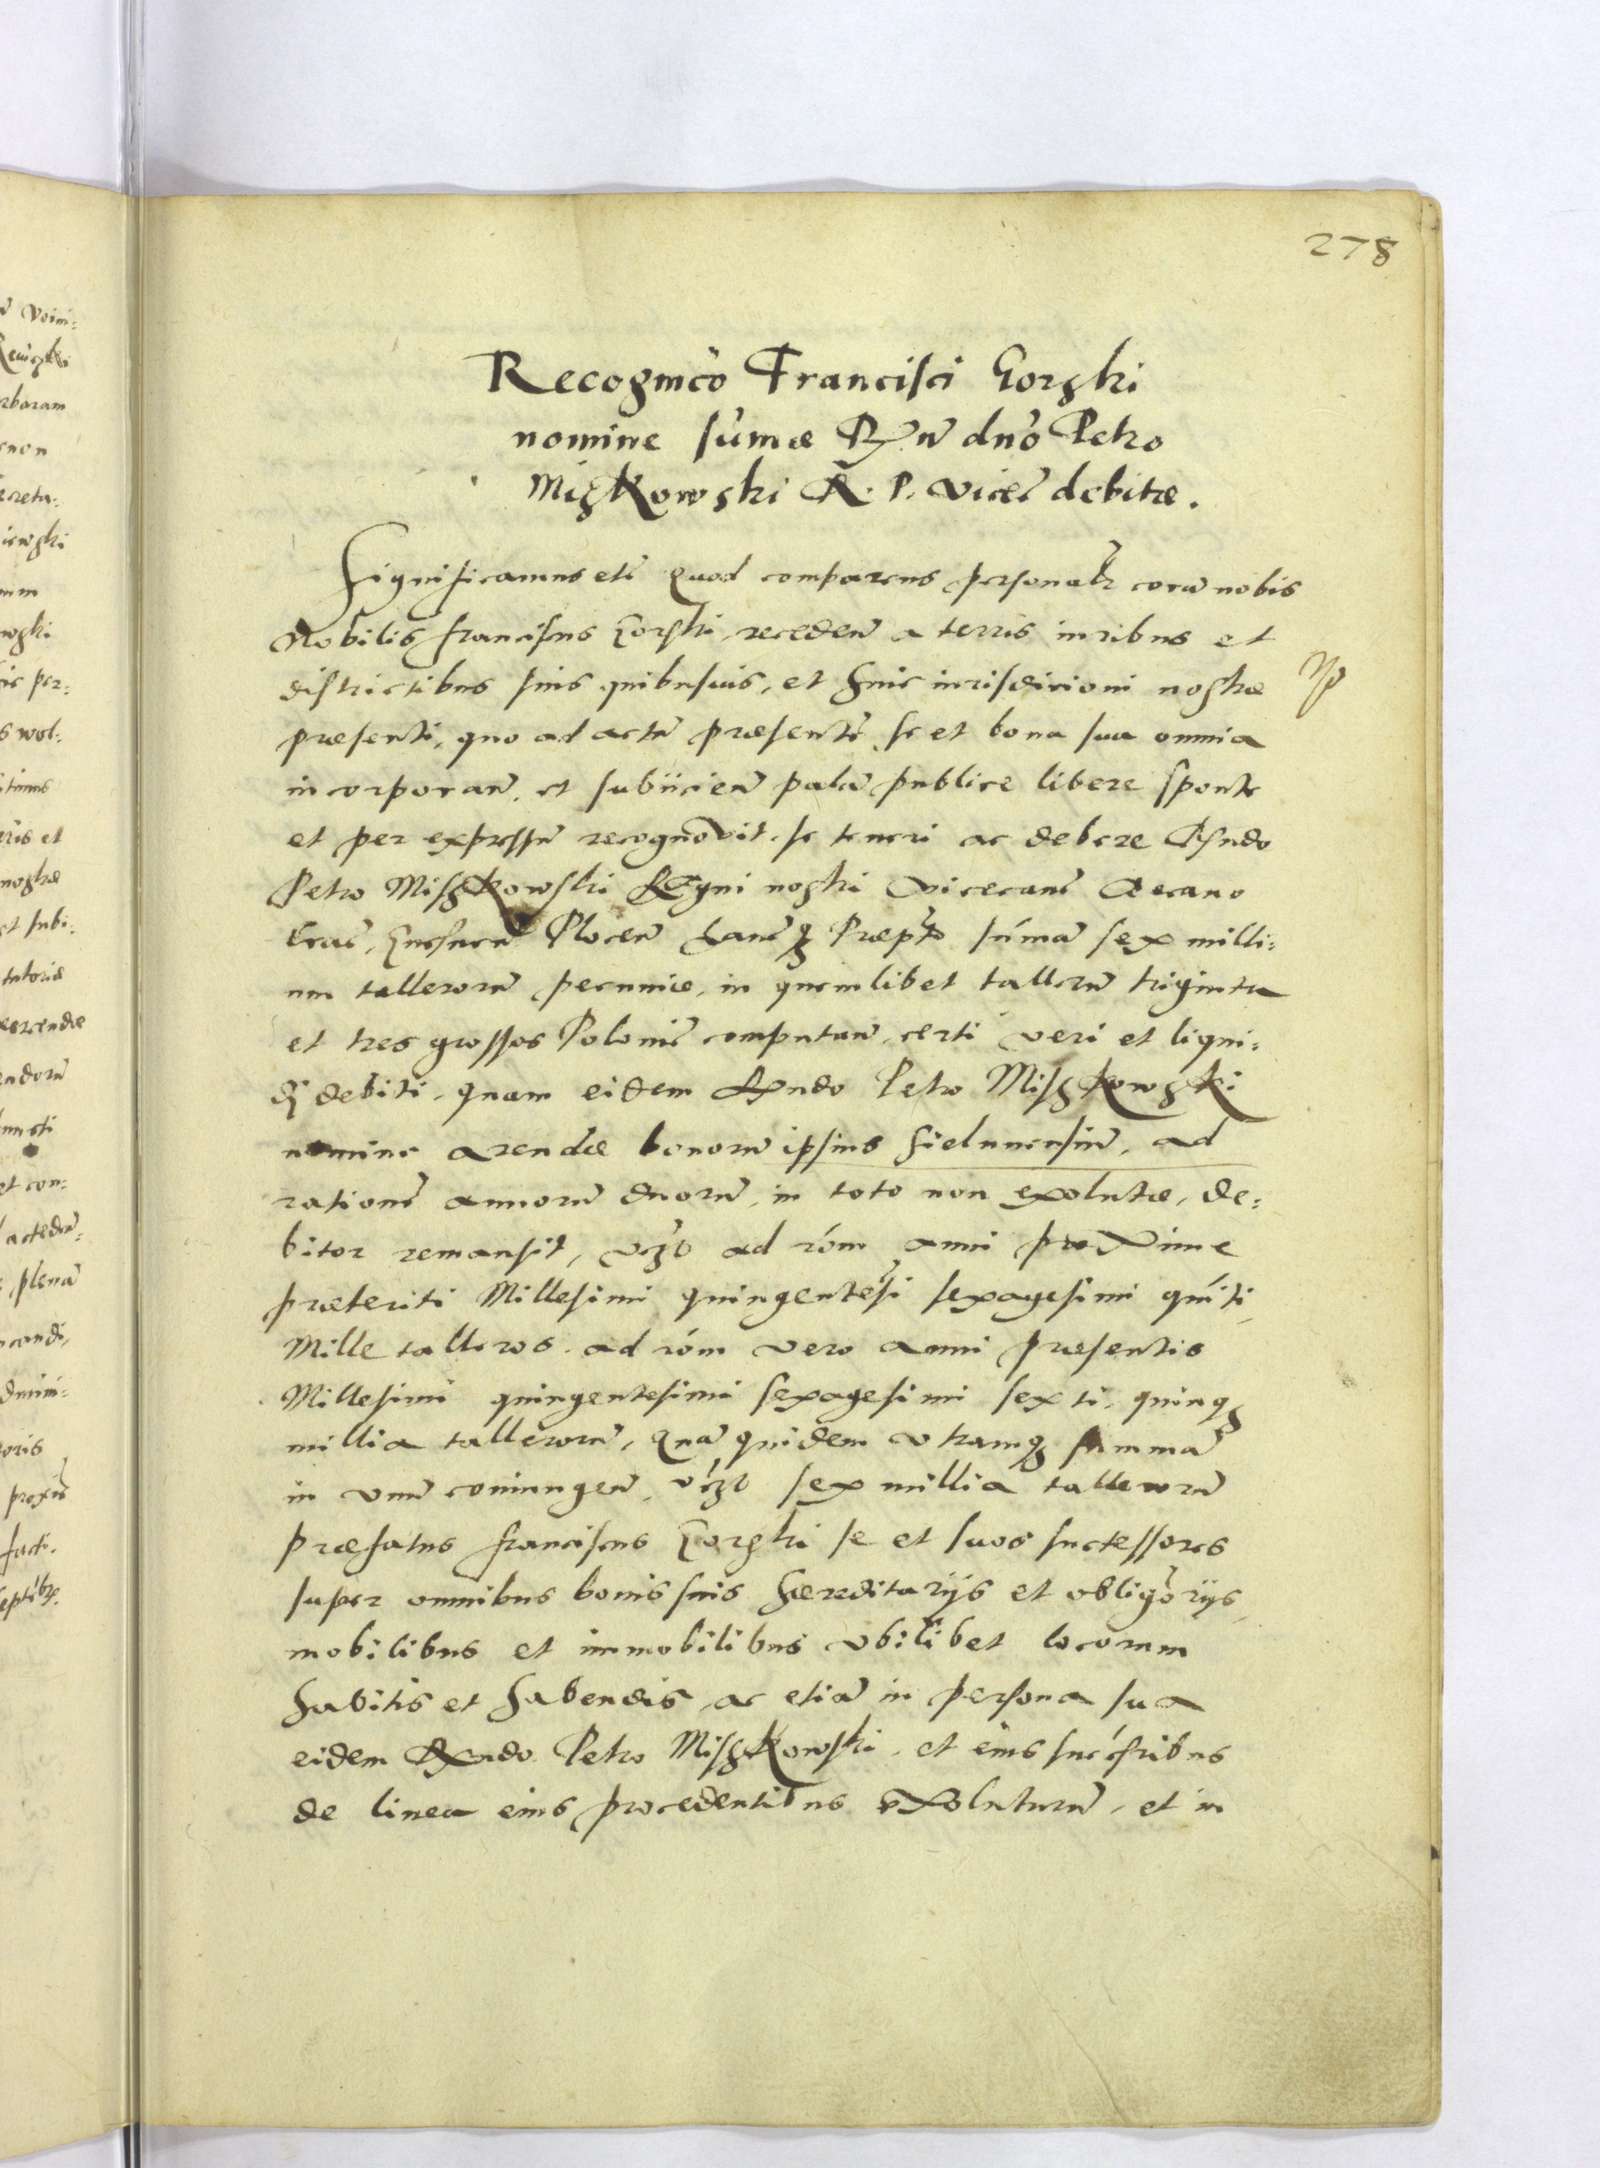 278
Recognicõ Francisci Gorski
nomine sum̃ae dnõ Petro
Miskowski R. P. Vicec̃ debitae.
Significamus etc̃ Quod comparens personalr̃ corã nobis
Nobilis Franciscus Gorski, receden̄ a terris iuribus et
districtibus suis quibusuis, et huic iurisdicioni nostrae
praesenti, quo ad actũ praesentẽ se et bona sua omnia
incorporan̄, et subiicien̄ palã publice libere sponte
et per expressũ recognovit se teneri ac debere Rṇdo
Petro Miskowski Regni nostri Vicecanc̃ Decano
Crac̃, Gnesnen̄ Plocen̄ Lanc̃ Praepto summã sex milli:
um tallerorũ pecuniae, in quemlibet tallerũ triginta
et tres grossos Polonic̃ computan̄, certi veri et liqui:
di debiti, quam eidem Rṇdo Petro Miskowski
nomine arendae bonorũ ipsius Sielunensiũ, ad
rationẽ annorũ duorũ, in toto non exolutae, de:
bitor remansit, vcz̃t ad rõm anni proxime
praeteriti Millesimi quingentesĩ sexagesimi quĩti,
Mille talleros. ad rõm vero anni praesentis
Millesimi quingentesimi sexagesimi sexti, quinqʒ
millia tallerorũ, Quã quidem vtramqʒ summã
in vnũ coniungen̄, vcz̃t sex millia tallerorũ
praefatus Franciscus Gorski se et suos successores
super omnibus bonis suis haereditarijs et obligõrijs,
mobilibus et immobilibus vbilibet locorum
habitis et habendis, ac etiã in persona sua
eidem Rṇdo Petro Miskowski, et eius succ̃ribus
de linea eius procedentibus exoluturũ, et in